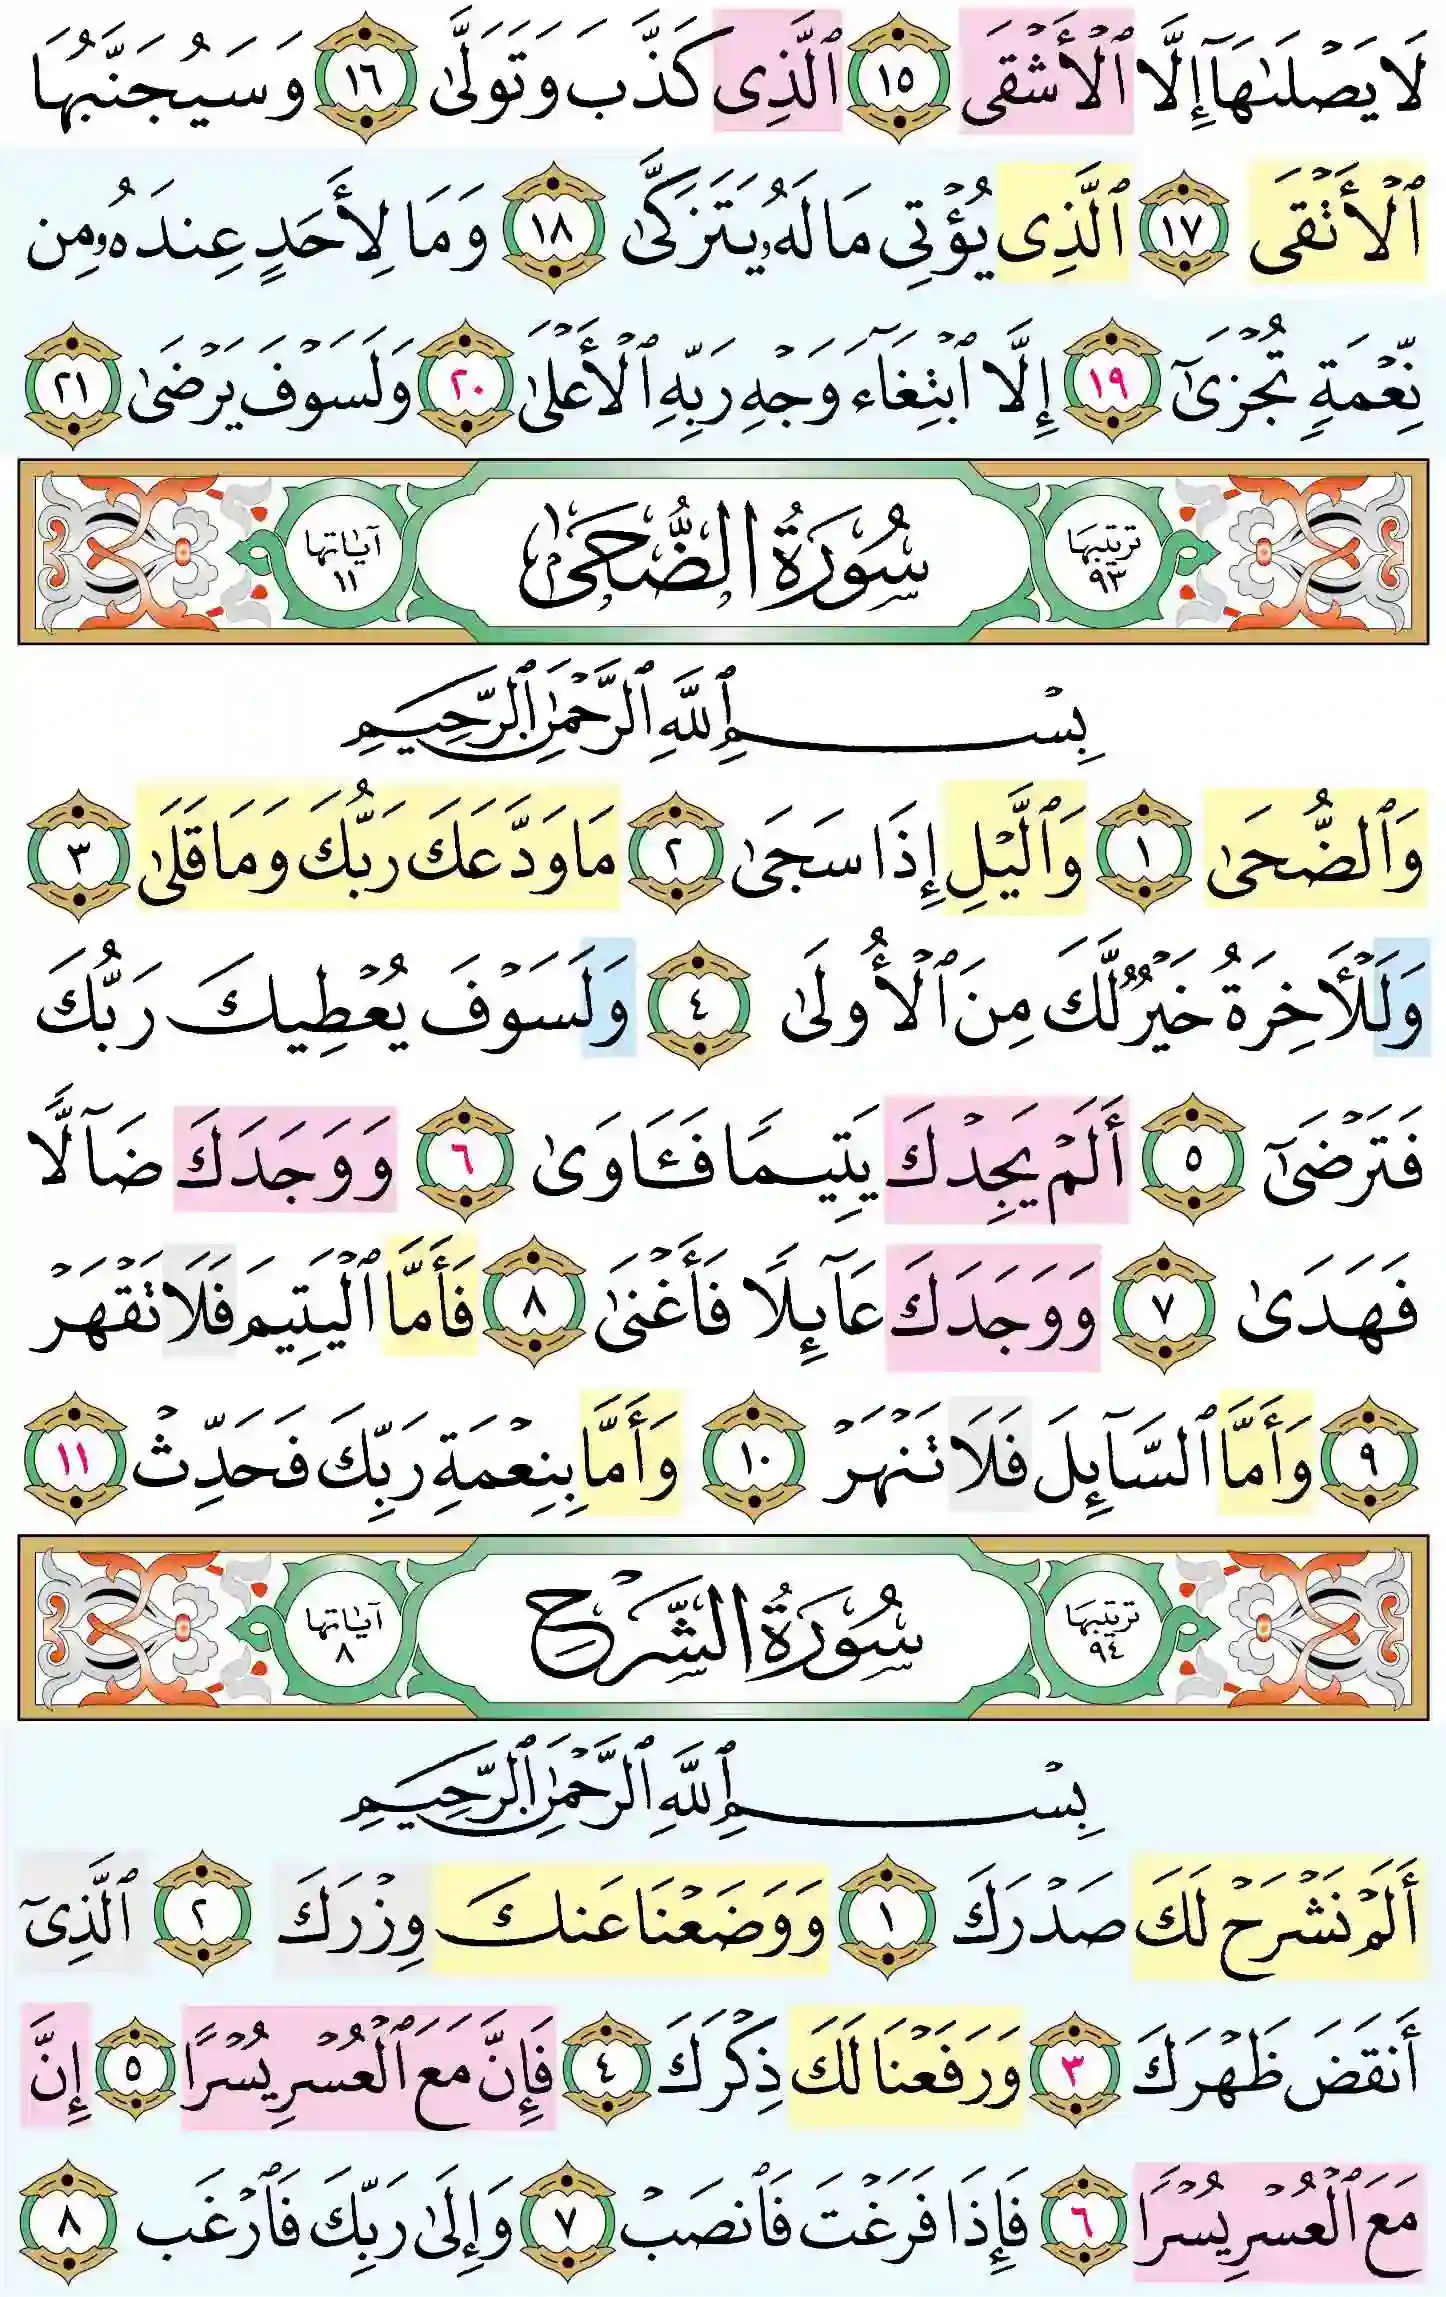 لَا يَصْلَىٰهَآ إِلَّا ٱلْأَشْقَى ١٥ ٱلَّذِى كَذَّبَ وَتَوَلَّىٰ ١٦ وَسَيُجَنَّبُهَا
ٱلْأَتْقَى ١٧ ٱلَّذِى يُؤْتِى مَالَهُۥ يَتَزَكَّىٰ ١٨ وَمَا لِأَحَدٍ عِندَهُۥ مِن
نِّعْمَةٍ تُجْزَىٰٓ ١٩ إِلَّا ٱبْتِغَآءَ وَجْهِ رَبِّهِ ٱلْأَعْلَىٰ ٢٠ وَلَسَوْفَ يَرْضَىٰ ٢١
ترتيبها ٩٣ سُورَةُ الضُّحَىٰ آياتها ١١
بِسْمِ ٱللَّهِ ٱلرَّحْمَٰنِ ٱلرَّحِيمِ
وَٱلضُّحَىٰ ١ وَٱلَّيْلِ إِذَا سَجَىٰ ٢ مَا وَدَّعَكَ رَبُّكَ وَمَا قَلَىٰ ٣
وَلَلْأَخِرَةُ خَيْرٌ لَّكَ مِنَ ٱلْأُولَىٰ ٤ وَلَسَوْفَ يُعْطِيكَ رَبُّكَ
فَتَرْضَىٰٓ ٥ أَلَمْ يَجِدْكَ يَتِيمًا فَـَٔاوَىٰ ٦ وَوَجَدَكَ ضَآلًّا
فَهَدَىٰ ٧ وَوَجَدَكَ عَآئِلًا فَأَغْنَىٰ ٨ فَأَمَّا ٱلْيَتِيمَ فَلَا تَقْهَرْ
٩ وَأَمَّا ٱلسَّآئِلَ فَلَا تَنْهَرْ ١٠ وَأَمَّا بِنِعْمَةِ رَبِّكَ فَحَدِّثْ ١١
ترتيبها ٩٤ سُورَةُ الشَّرْحِ آياتها ٨
بِسْمِ ٱللَّهِ ٱلرَّحْمَٰنِ ٱلرَّحِيمِ
أَلَمْ نَشْرَحْ لَكَ صَدْرَكَ ١ وَوَضَعْنَا عَنكَ وِزْرَكَ ٢ ٱلَّذِىٓ
أَنقَضَ ظَهْرَكَ ٣ وَرَفَعْنَا لَكَ ذِكْرَكَ ٤ فَإِنَّ مَعَ ٱلْعُسْرِ يُسْرًا ٥ إِنَّ
مَعَ ٱلْعُسْرِ يُسْرًا ٦ فَإِذَا فَرَغْتَ فَٱنصَبْ ٧ وَإِلَىٰ رَبِّكَ فَٱرْغَب ٨